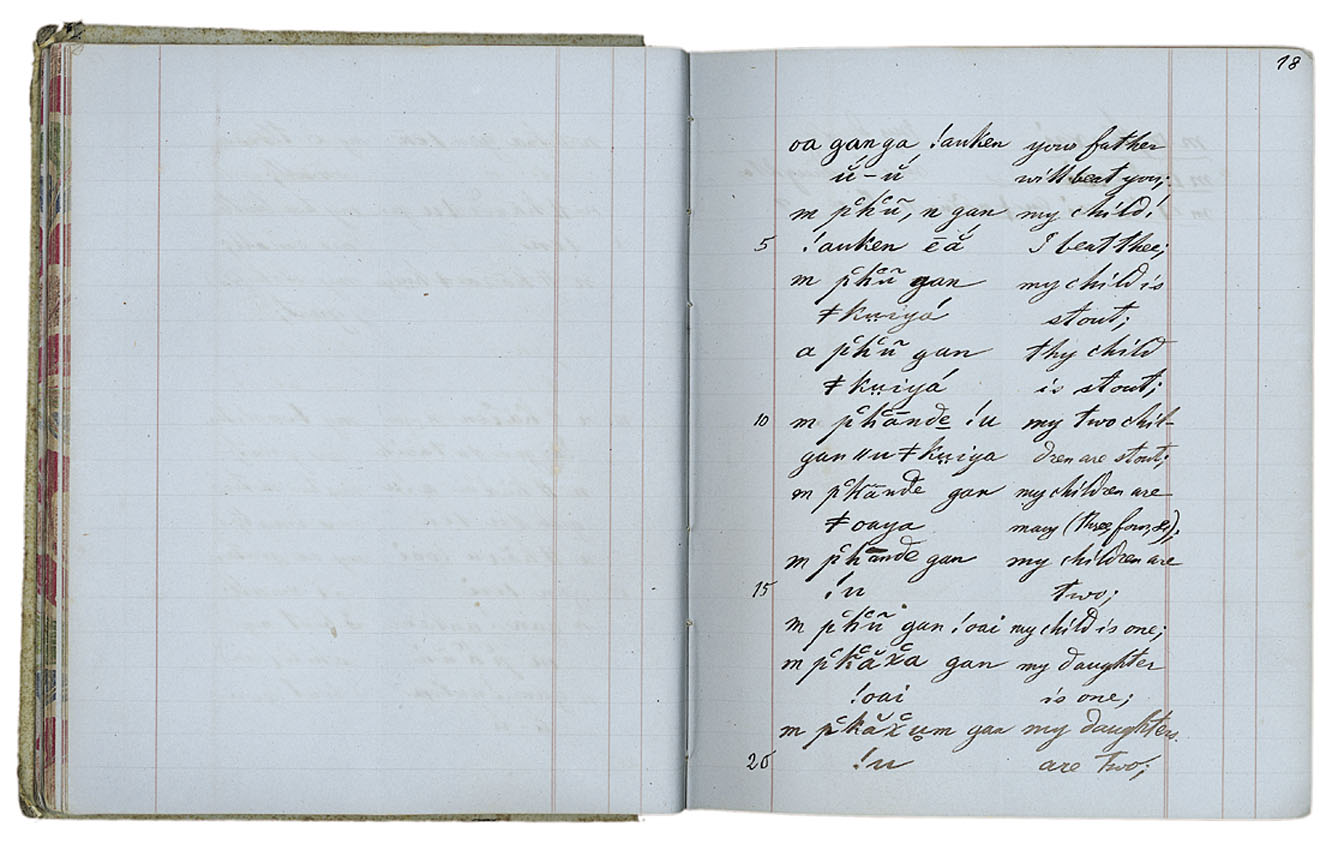 18
oa gan gá !auken your father
ŭ́ – ŭ́ will beat you;
m p̔h̔ũ, n gan my child!
5 !auken ē ắ I beat thee;
m p̔h̔ũ gan my child is
ǂkṳiyá stout;
a p̔h̔ũ gan thy child
ǂkṳiyá is stout;
10 m p̔h̔ānde !u my two chil-
gan ǁu ǂkṳiya dren are stout;
m p̔h̔ānde gan my children are
ǂoaya many (three, four, &);
m p̔h̔ānde gan my children are
15 !u two;
m p̔h̔ũ gan !oai my child is one;
m p̔h̔ă̔x̔a gan my daughter
!oai is one;
m p̔h̔ăx̔ṳm gan my daughters
20 !u are two;